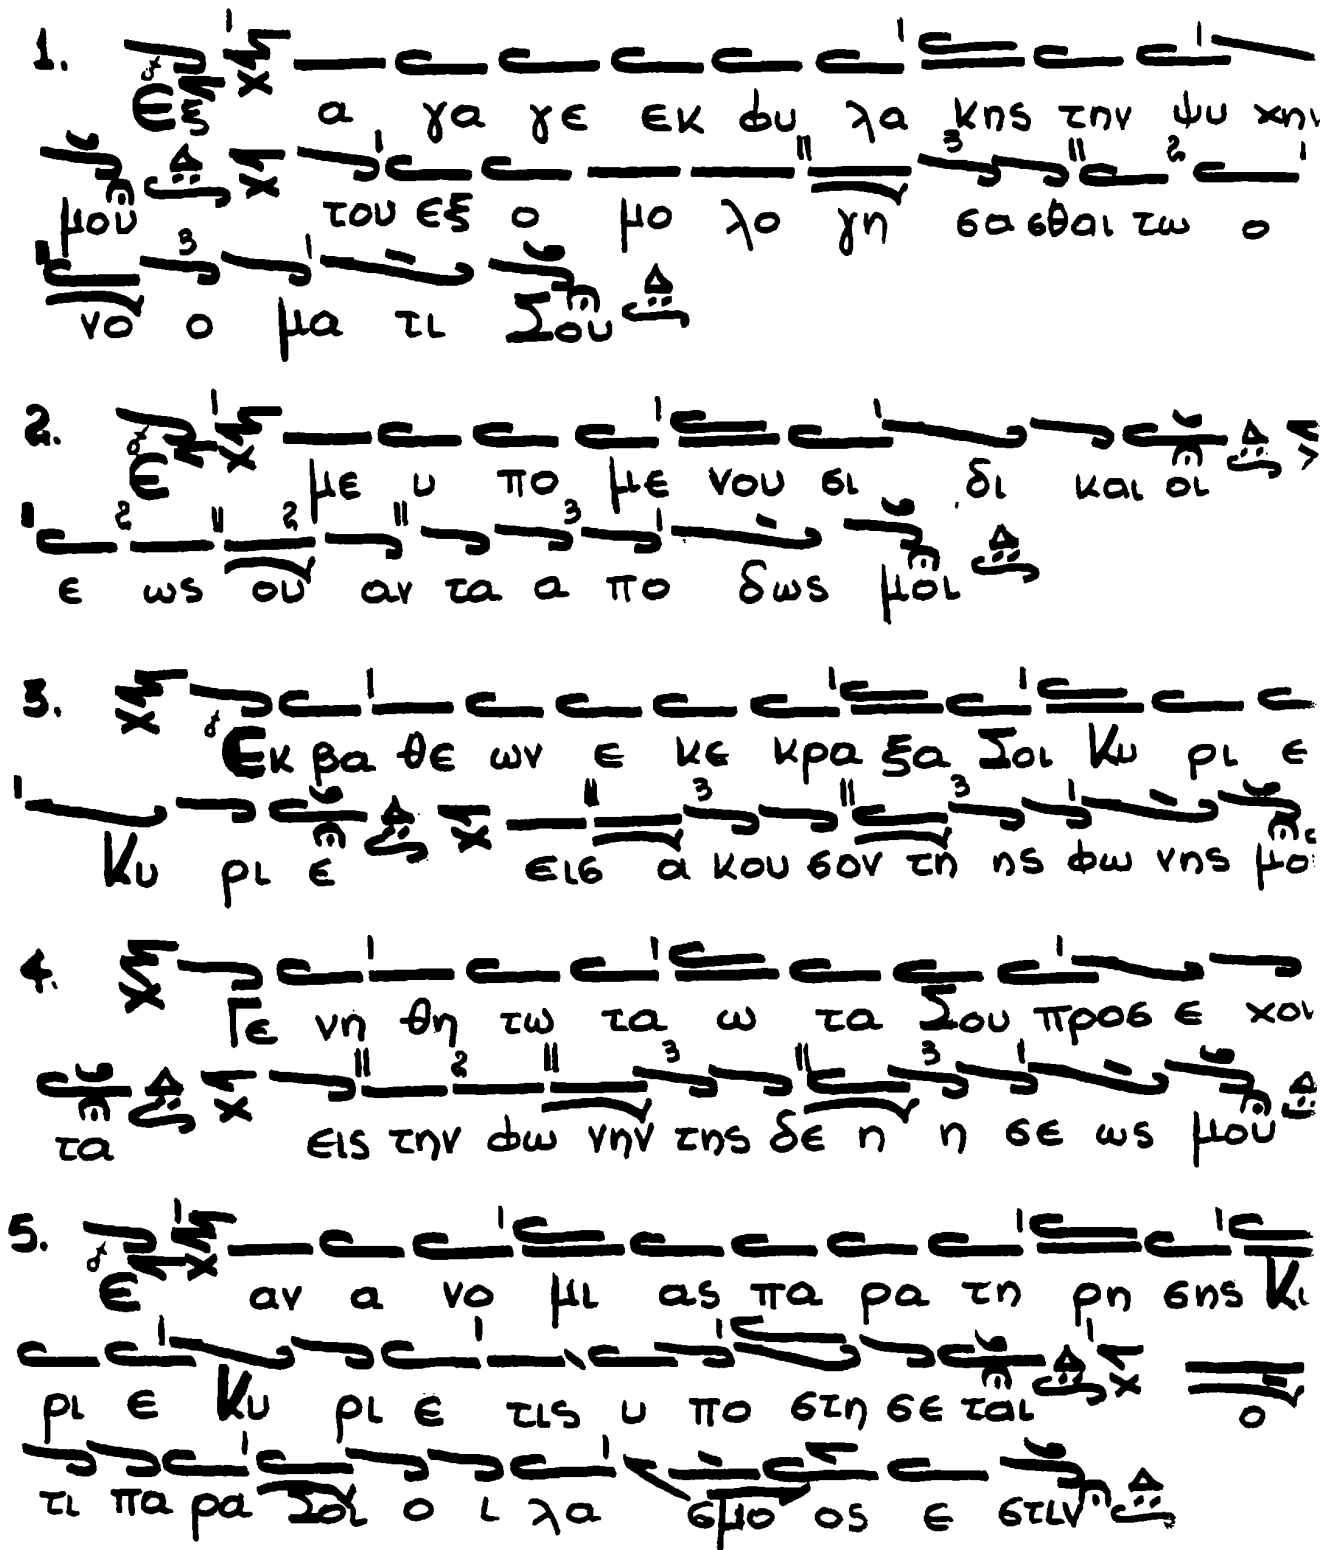 1. Εξ α γα γε εκ φυ λα κης την ψυ χην
μου του εξ ο μο λο γη σα σθαι τω ο
νο ο μα τι Σου
2. Ε με υ πο με νου σι δι και οι
ε ως ου αν τα α πο δως μοι
3. Εκ βα θε ων ε κε κρα ξα Σοι Κυ ρι ε
Κυ ρι ε εις α κου σον τη ης φω νης μο
4. Γε νη θη τω τα ω τα Σου προσ ε χον
τα εις την φω νην της δε η η σε ως μου
5. Ε αν α νο μι ας πα ρα τη ρη σης Κι
ρι ε Κυ ρι ε τις υ πο στη σε ται ο
τι πα ρα Σοι ο ι λα σμο ος ε στιν